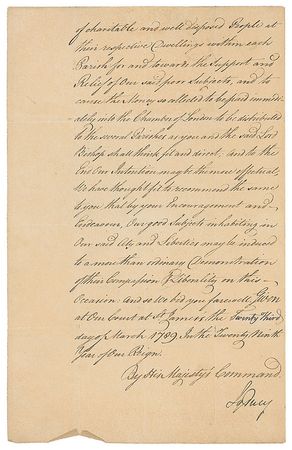 of charitable and well disposed People at
their respective Dwellings within each
Parish for and towards the Support and
Relief of Our said poor Subjects, and to
cause the Money so collected to be paid immedi-
ately into the Chamber of London to be distributed
to the several Parishes as you and the said Lord
Bishop shall think fit and direct; and to the
End Our Intention may be the more effectual;
We have thought fit to recommend the same
to you that by your Encouragement and
Endeavour, Our good Subjects inhabiting in
Our said City and Liberties may be induced
to a more than ordinary Demonstration
of their Compassion & Liberality on this
Occasion. And so We bid you farewell, Given
at Our Court at St. James's the Twenty Third
day of March 1789. In the Twenty Ninth
Year of Our Reign.
By His Majesty's Command
Sydney